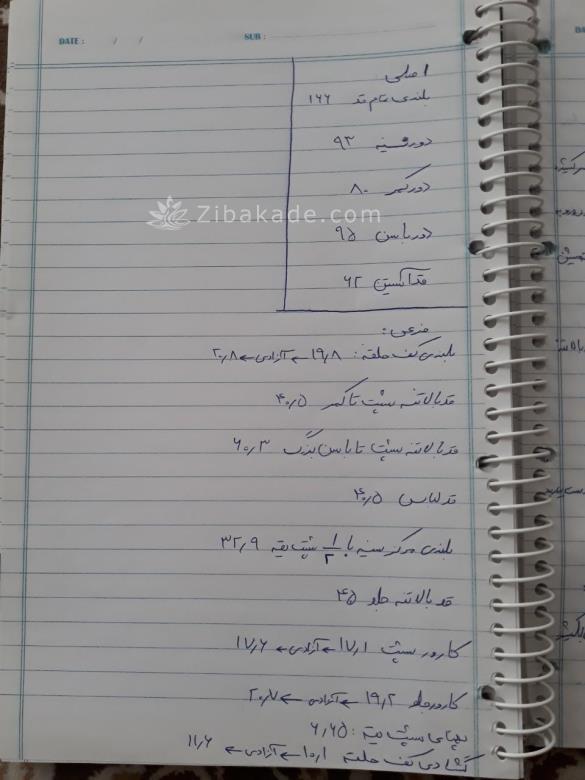 DATE : / /
SUB :
اصلی
بلندی تمام قد ۱۶۶
دور سینه ۹۳
دور کمر ۸۰
دور باسن ۹۵
قد آستین ۶۲
فرعی:
بلندی کف حلقه: ۱۹٫۸ ← آزادی ← ۲۰٫۸
قد بالا تنه پشت تا کمر ۴۰٫۵
قد بالا تنه پشت تا باسن بزرگ ۶۰٫۳
قد لباس ۴۰٫۵
بلندی مرکز سینه با ۱/۲ پشت یقه ۳۲٫۹
قد بالا تنه جلو ۴۵
کارور پشت ۱۷٫۱ ← آزادی ← ۱۷٫۶
کارور جلو ۱۹٫۲ ← آزادی ← ۲۰٫۷
پهنای پشت یقه: ۶٫۶۵
گشادی کف حلقه ۱۰٫۱ ← آزادی ← ۱۱٫۶
Zibakade.com